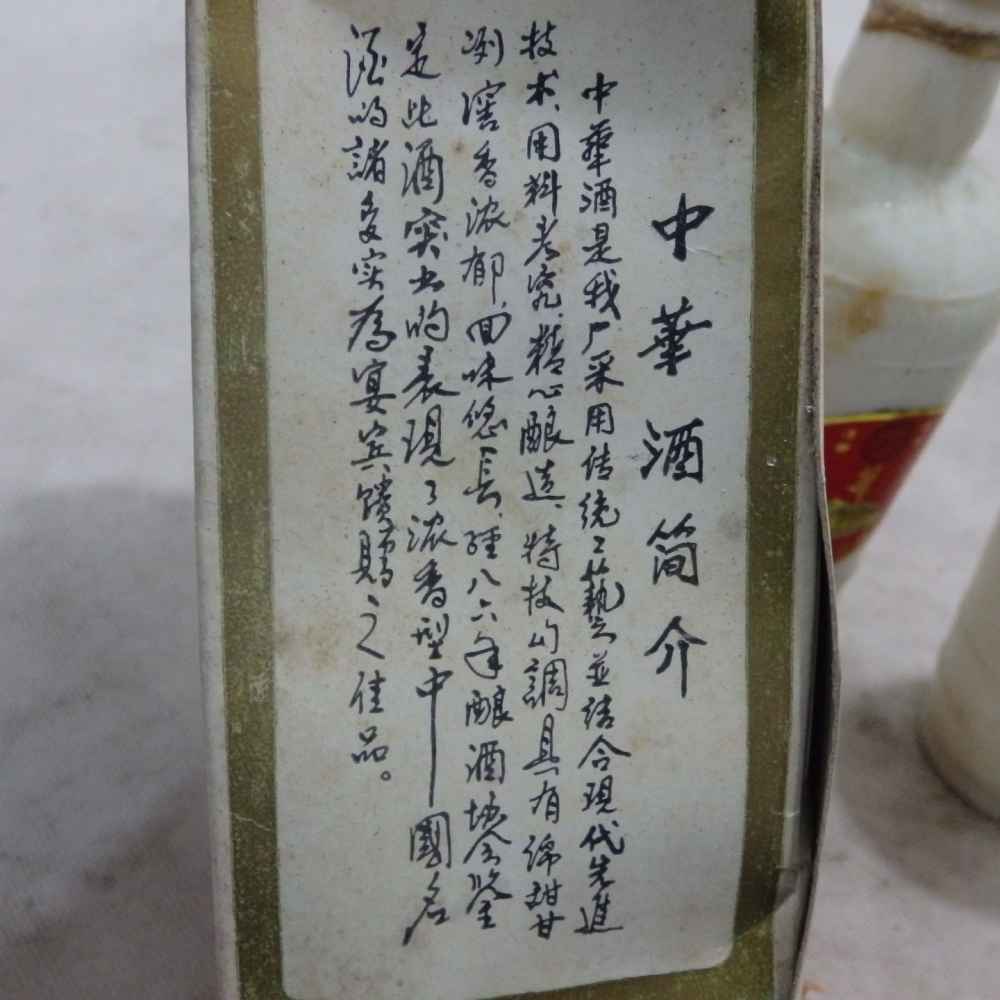 中華酒简介
中華酒是我厂采用传统工藝並结合現代先進
技术、用料考究、精心酿造、特技勾調具有绵甜甘
冽窖香浓郁、回味悠長、经八六年酿酒协会鉴
定此酒突出的表現了浓香型中國名
酒的諸多实為宴宾馈赠之佳品。